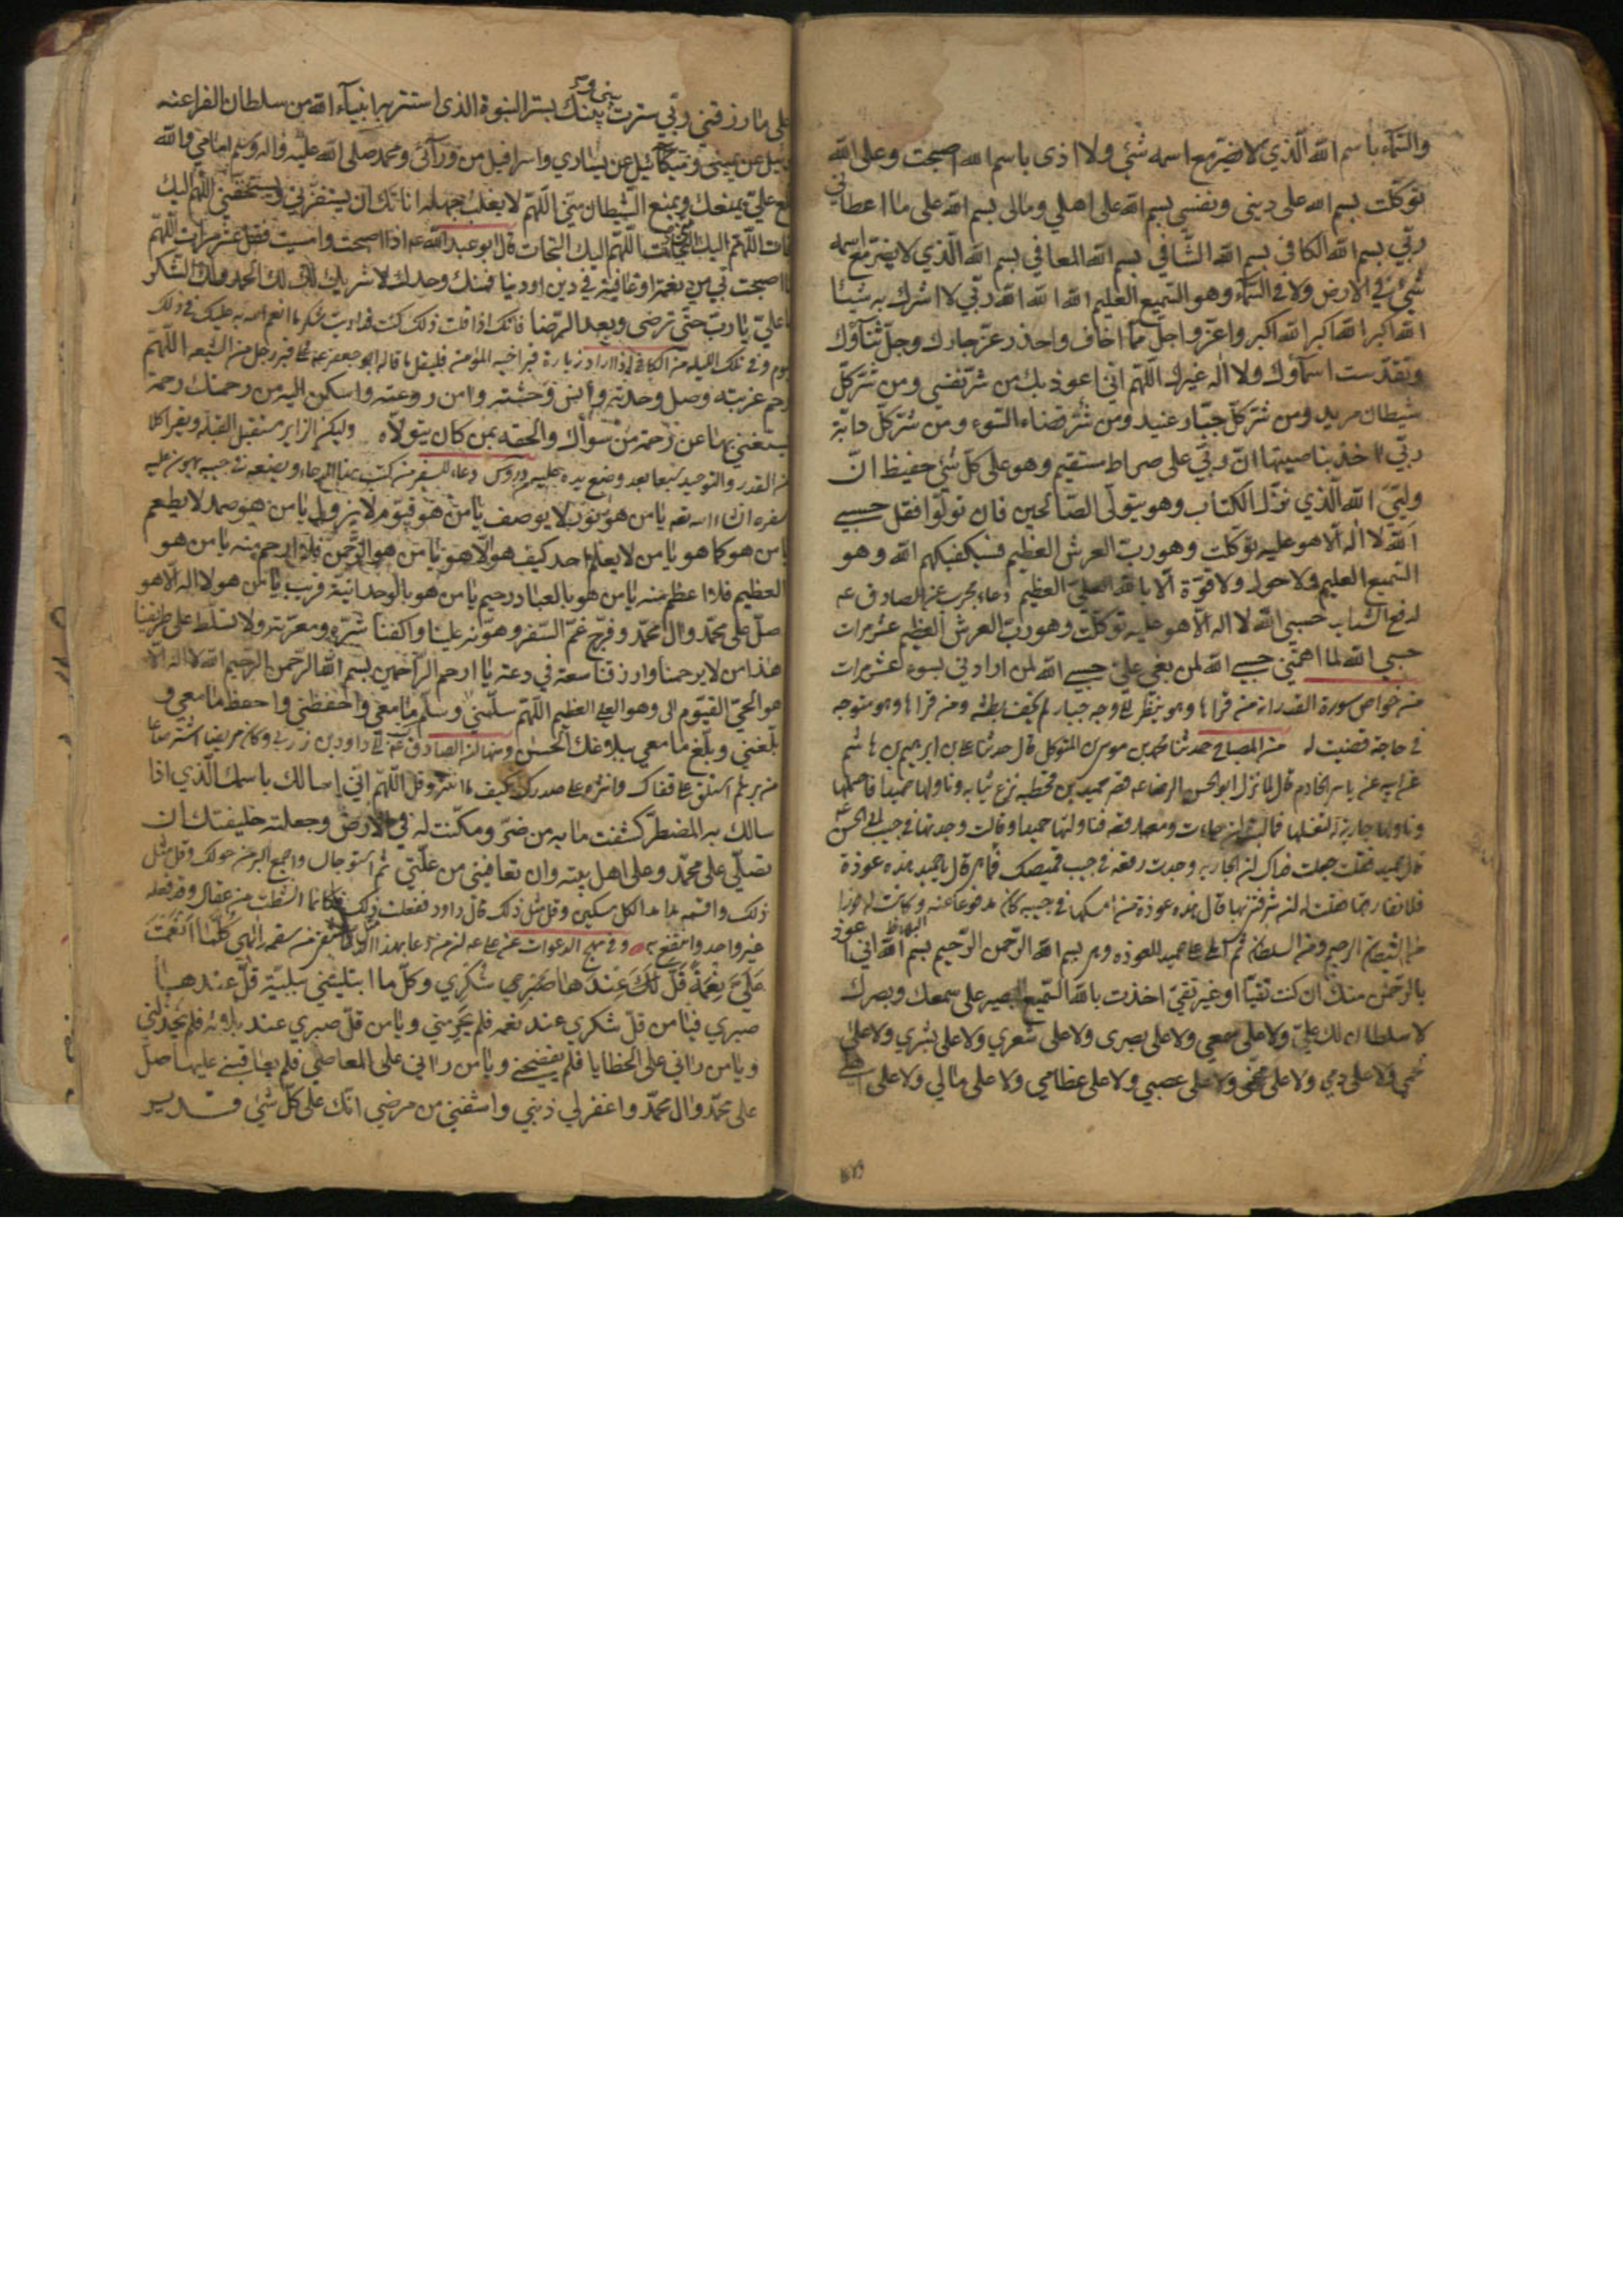 والسماء باسم الله الّذي لا يضرّ مع اسمه شئ ولا اذى باسم الله اصبحت وعلى الله
توكّلت بسم الله على ديني ونفسي بسم الله على اهلي ومالى بسم الله على ما اعطاني
ربّي بسم الله الكافي بسم الله الشّافي بسم الله المعافي بسم الله الّذي لا يضرّ مع اسمه
شئ في الارض ولا في السّماء وهو السّميع العليم الله الله الله ربّي لا اشرك به شيئا
الله اكبر الله اكبر الله اكبر واعزّ واجلّ ممّا اخاف واحذر عزّ جارك وجلّ ثناؤك
وتقدّست اسماؤك ولا اله غيرك اللّهمّ انّي اعوذ بك من شرّ نفسي ومن شرّ كلّ
شيطان مريد ومن شرّ كلّ جبّار عنيد ومن شرّ قضاء السّوء ومن شرّ كلّ دابّة
ربّي اخذ بناصيتها انّ ربّي على صراط مستقيم وهو على كلّ شئ حفيظ انّ
وليّي الله الّذي نزّل الكتاب وهو يتولّى الصّالحين فان تولّوا فقل حسبي
الله لا اله الّا هو عليه توكّلت وهو ربّ العرش العظيم فسيكفيكهم الله وهو
السّميع العليم ولا حول ولا قوّة الّا بالله العليّ العظيم دعاء مجرب عن الصادق عه
لدفع حسبي الله لا اله الّا هو عليه توكّلت وهو ربّ العرش العظيم عشر مرات
حسبي الله لما اهمّني حسبي الله لمن بغى عليّ حسبي الله لمن ارادني بسوء عشر مرات
من خواص سورة القدر انه من قراها وهو ينظر الى وجه جبار لم يخف بطشه ومن قراها وهو متوجه
في حاجة قضيت له من المصباح حدثنا محمد بن موسى المتوكل قال حدثنا علي بن ابراهيم بن هاشم
عن ابيه عن ياسر الخادم قال لما نزل ابو الحسن الرضا عه قصر حميد بن قحطبه نزع ثيابه وناولها حميدا فاحتملها
وناولها جارية له لتغسلها فما لبثت ان جاءت ومعها رقعه فناولتها حميدا وقالت وجدتها في جيب ابي الحسن عه
قال حميد فقلت جعلت فداك ان الجاريه وجدت رقعه في جيب قميصك فما هي قال يا حميد هذه عوذة
لا نفارقها فقلت له لو شرفتني بها قال هذه عوذة من امسكها في جيبه كان مدفوعا عنه وكانت له حرزا
من الشيطان الرجيم ومن السلطان ثم املى على حميد العوذه وهي بسم الله الرّحمن الرّحيم بسم الله انّي اعوذ
بالرّحمن منك ان كنت تقيّا او غير تقيّ اخذت بالله السّميع البصير على سمعك وبصرك
لا سلطان لك عليّ ولا على سمعي ولا على بصرى ولا على شعري ولا على بشري ولا على
لحمي ولا على دمي ولا على مخّي ولا على عصبي ولا على عظامي ولا على مالي ولا على اهلي
على ما رزقني ربّي سترت بيني وبينك بستر النبوة الذي استتر به انبياء الله من سلطان الفراعنه
عن يميني وميكائيل عن يساري واسرافيل من ورآئي ومحمد صلى الله عليه واله وسلم امامي والله
مطلع عليّ يمنعك ويمنع الشّيطان منّي اللّهمّ لا يغلب جهله اناتك ان يستفزّني ويستخفّني اللّهمّ اليك
التجات اللّهمّ اليك التجات اللّهمّ اليك التجات قال ابو عبد الله عه اذا اصبحت وامسيت فقل عشر مرات اللّهمّ
ما اصبحت بي من نعمة او عافية في دين او دنيا فمنك وحدك لا شريك لك لك الحمد ولك الشّكر
بها عليّ يا ربّ حتّى ترضى وبعد الرّضا فانك اذا قلت ذلك كنت قد اديت شكر ما انعم الله به عليك في ذلك
اليوم وفي تلك الليله من الكافي اذا اراد زيارة قبر اخيه المؤمن فليقل ما قاله ابو جعفر عه على قبر رجل من الشيعه اللّهمّ
ارحم غربته وصل وحدته وآنس وحشته وامن روعته واسكن اليه من رحمتك رحمة
يستغني بها عن رحمة من سواك والحقه بمن كان يتولّاه وليكن الزاير مستقبل القبله ويقرا كلا
من القدر والتوحيد سبعا بعد وضع يده عليه دعاء للسفر من كتب هذا الدعاء ويضعه في جيبه يهون عليه
سفره انشاء الله تعم يا من هو نور لا يوصف يا من هو قيّوم لا يزول يا من هو صمد لا يطعم
يا من هو كما هو يا من لا يعلم احد كيف هو الّا هو يا من هو الرّحمن فلا ارحم منه يا من هو
العظيم فلا اعظم منه يا من هو بالعباد رحيم يا من هو بالوحدانيّة قريب يا من هو لا اله الّا هو
صلّ على محمّد وال محمّد وفرّج غمّ السّفر وهوّنه علينا واكفنا شرّه ومعرّته ولا تسلّط على
هذا من لا يرحمنا وارزقنا سعة في دعة يا ارحم الرّاحمين بسم الله الرّحمن الرّحيم الله لا اله الّا
هو الحيّ القيّوم الى وهو العلي العظيم اللّهمّ سلّمني وسلّم ما معي واحفظني واحفظ ما معي و
بلّغني وبلّغ ما معي ببلاغك الحسن ومنها ان الصادق عه الى داود بن زربي وكان مريضا اشتر صاعا
من بر ثم استلق على قفاك وانثره على صدرك كيف ما انتثر وقل اللّهمّ انّي اسالك باسمك الّذي اذا
سالك به المضطرّ كشفت ما به من ضرّ ومكّنت له في الارض وجعلته خليفتك ان
تصلّي على محمّد وعلى اهل بيته وان تعافيني من علّتي ثم استو جالسا واجمع البر من حولك وقل مثل
ذلك واقسمه مدا مدا لكل مسكين وقل مثل ذلك قال داود ففعلت ذلك فكانما انشطت من عقال وقد فعله
غير واحد وانتفع به وفي مهج الدعوات عن علي عه ان من دعا بهذا الدعاء من سقمه الهي كلّما انعمت
عليّ بنعمة قلّ لك عندها شكري وكلّ ما ابتليتني ببليّة قلّ عندها
صبري فيا من قلّ شكري عند نعمه فلم يحرمني ويا من قلّ صبري عند بلائه فلم يخذلني
ويا من رآني على الخطايا فلم يفضحني ويا من رآني على المعاصي فلم يعاقبني عليها صلّ
على محمّد وال محمّد واغفر لي ذنبي واشفني من مرضي انّك على كلّ شئ قدير